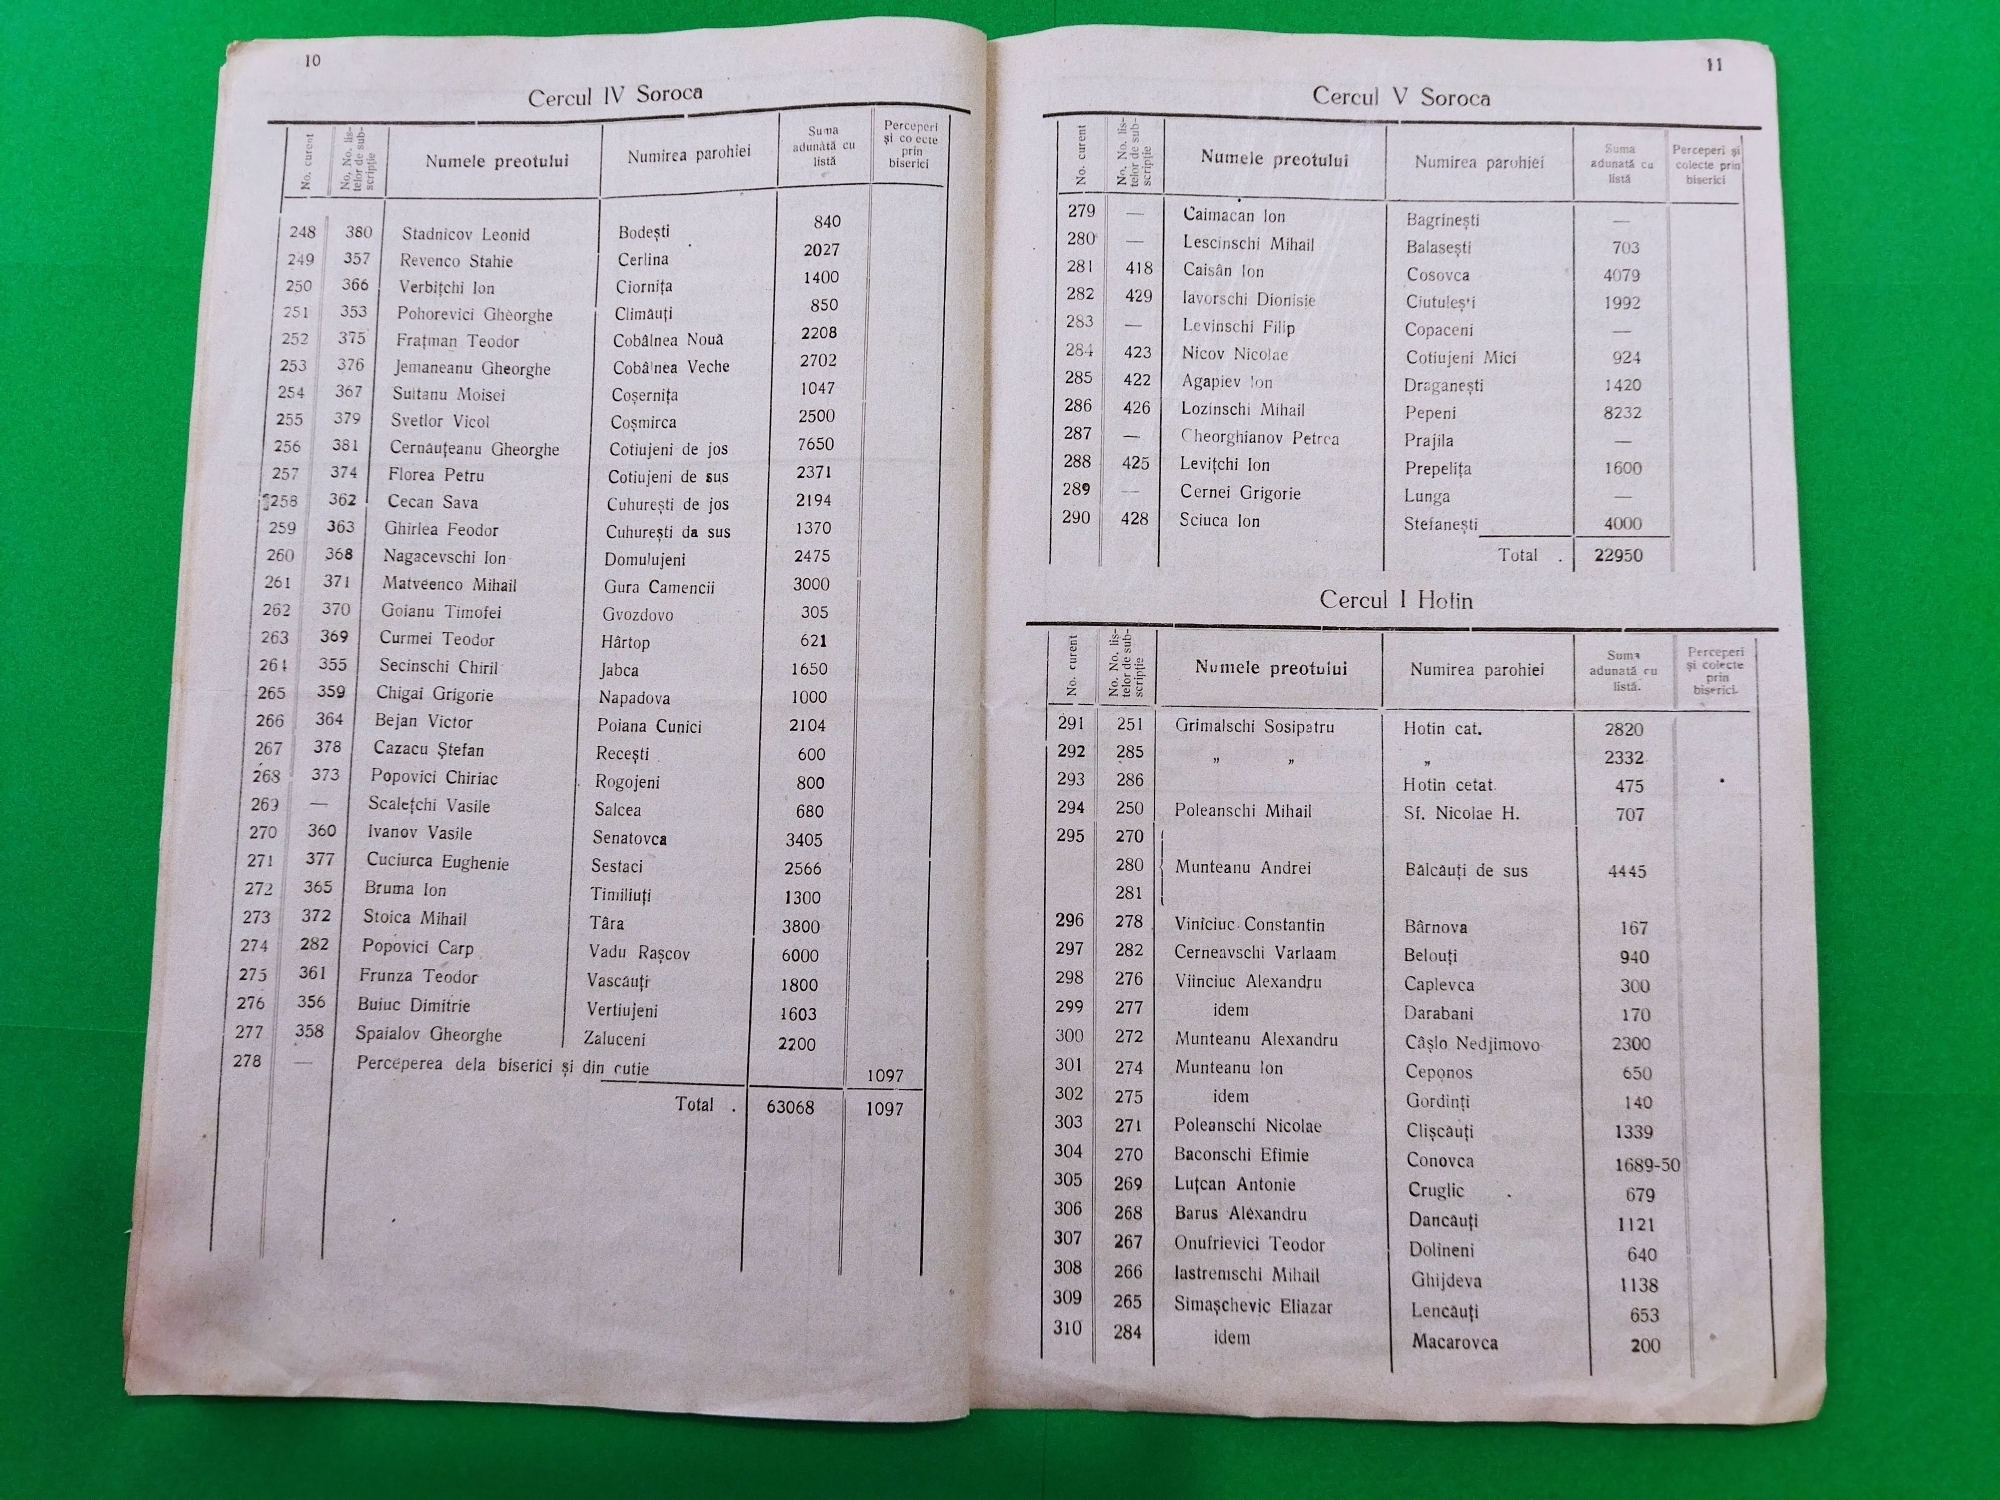 10
Cercul IV Soroca
No. curent No. No. lis- telor de sub- scripţie Numele preotului Numirea parohiei Suma adunată cu listă Perceperi şi co ecte prin biserici
248 380 Stadnicov Leonid Bodeşti 840
249 357 Revenco Stahie Cerlina 2027
250 366 Verbiţchi Ion Ciorniţa 1400
251 353 Pohorevici Gheorghe Climăuţi 850
252 375 Fraţman Teodor Cobâlnea Nouă 2208
253 376 Jemaneanu Gheorghe Cobâlnea Veche 2702
254 367 Suitanu Moisei Coşerniţa 1047
255 379 Svetlor Vicol Coşmirca 2500
256 381 Cernăuţeanu Gheorghe Cotiujeni de jos 7650
257 374 Florea Petru Cotiujeni de sus 2371
258 362 Cecan Sava Cuhureşti de jos 2194
259 363 Ghirlea Feodor Cuhureşti da sus 1370
260 368 Nagacevschi Ion Domulujeni 2475
261 371 Matveenco Mihail Gura Camencii 3000
262 370 Goianu Timofei Gvozdovo 305
263 369 Curmei Teodor Hârtop 621
264 355 Secinschi Chiril Jabca 1650
265 359 Chigai Grigorie Napadova 1000
266 364 Bejan Victor Poiana Cunici 2104
267 378 Cazacu Ştefan Receşti 600
268 373 Popovici Chiriac Rogojeni 800
269 — Scaleţchi Vasile Salcea 680
270 360 Ivanov Vasile Senatovca 3405
271 377 Cuciurca Eughenie Sestaci 2566
272 365 Bruma Ion Timiliuţi 1300
273 372 Stoica Mihail Târa 3800
274 282 Popovici Carp Vadu Raşcov 6000
275 361 Frunza Teodor Vascăuţi 1800
276 356 Buiuc Dimitrie Vertiujeni 1603
277 358 Spaialov Gheorghe Zaluceni 2200
278 — Perceperea dela biserici şi din cutie 1097
Total . 63068 1097
11
Cercul V Soroca
No. curent No. No. lis- telor de sub- scripţie Numele preotului Numirea parohiei Suma adunată cu listă Perceperi şi colecte prin biserici
279 — Caimacan Ion Bagrineşti —
280 — Lescinschi Mihail Balaseşti 703
281 418 Caisân Ion Cosovca 4079
282 429 Iavorschi Dionisie Ciutuleşti 1992
283 — Levinschi Filip Copaceni —
284 423 Nicov Nicolae Cotiujeni Mici 924
285 422 Agapiev Ion Draganeşti 1420
286 426 Lozinschi Mihail Pepeni 8232
287 — Gheorghianov Petrea Prajila —
288 425 Leviţchi Ion Prepeliţa 1600
289 — Cernei Grigorie Lunga —
290 428 Sciuca Ion Stefaneşti 4000
Total . 22950
Cercul I Hotin
No. curent No. No. lis- telor de sub- scripţie Numele preotului Numirea parohiei Suma adunată cu listă. Perceperi şi colecte prin biserici.
291 251 Grimalschi Sosipatru Hotin cat. 2820
292 285 „ „ „ 2332
293 286 Hotin cetat. 475
294 250 Poleanschi Mihail Sf. Nicolae H. 707
295 270
280 Munteanu Andrei Bălcăuţi de sus 4445
281
296 278 Viniciuc Constantin Bârnova 167
297 282 Cerneavschi Varlaam Belouţi 940
298 276 Viinciuc Alexandru Caplevca 300
299 277 idem Darabani 170
300 272 Munteanu Alexandru Câşlo Nedjimovo 2300
301 274 Munteanu Ion Ceponos 650
302 275 idem Gordinţi 140
303 271 Poleanschi Nicolae Clişcăuţi 1339
304 270 Baconschi Efimie Conovca 1689-50
305 269 Luţcan Antonie Cruglic 679
306 268 Barus Alexandru Dancăuţi 1121
307 267 Onufrievici Teodor Dolineni 640
308 266 Iastremschi Mihail Ghijdeva 1138
309 265 Simaşchevic Eliazar Lencăuţi 653
310 284 idem Macarovca 200